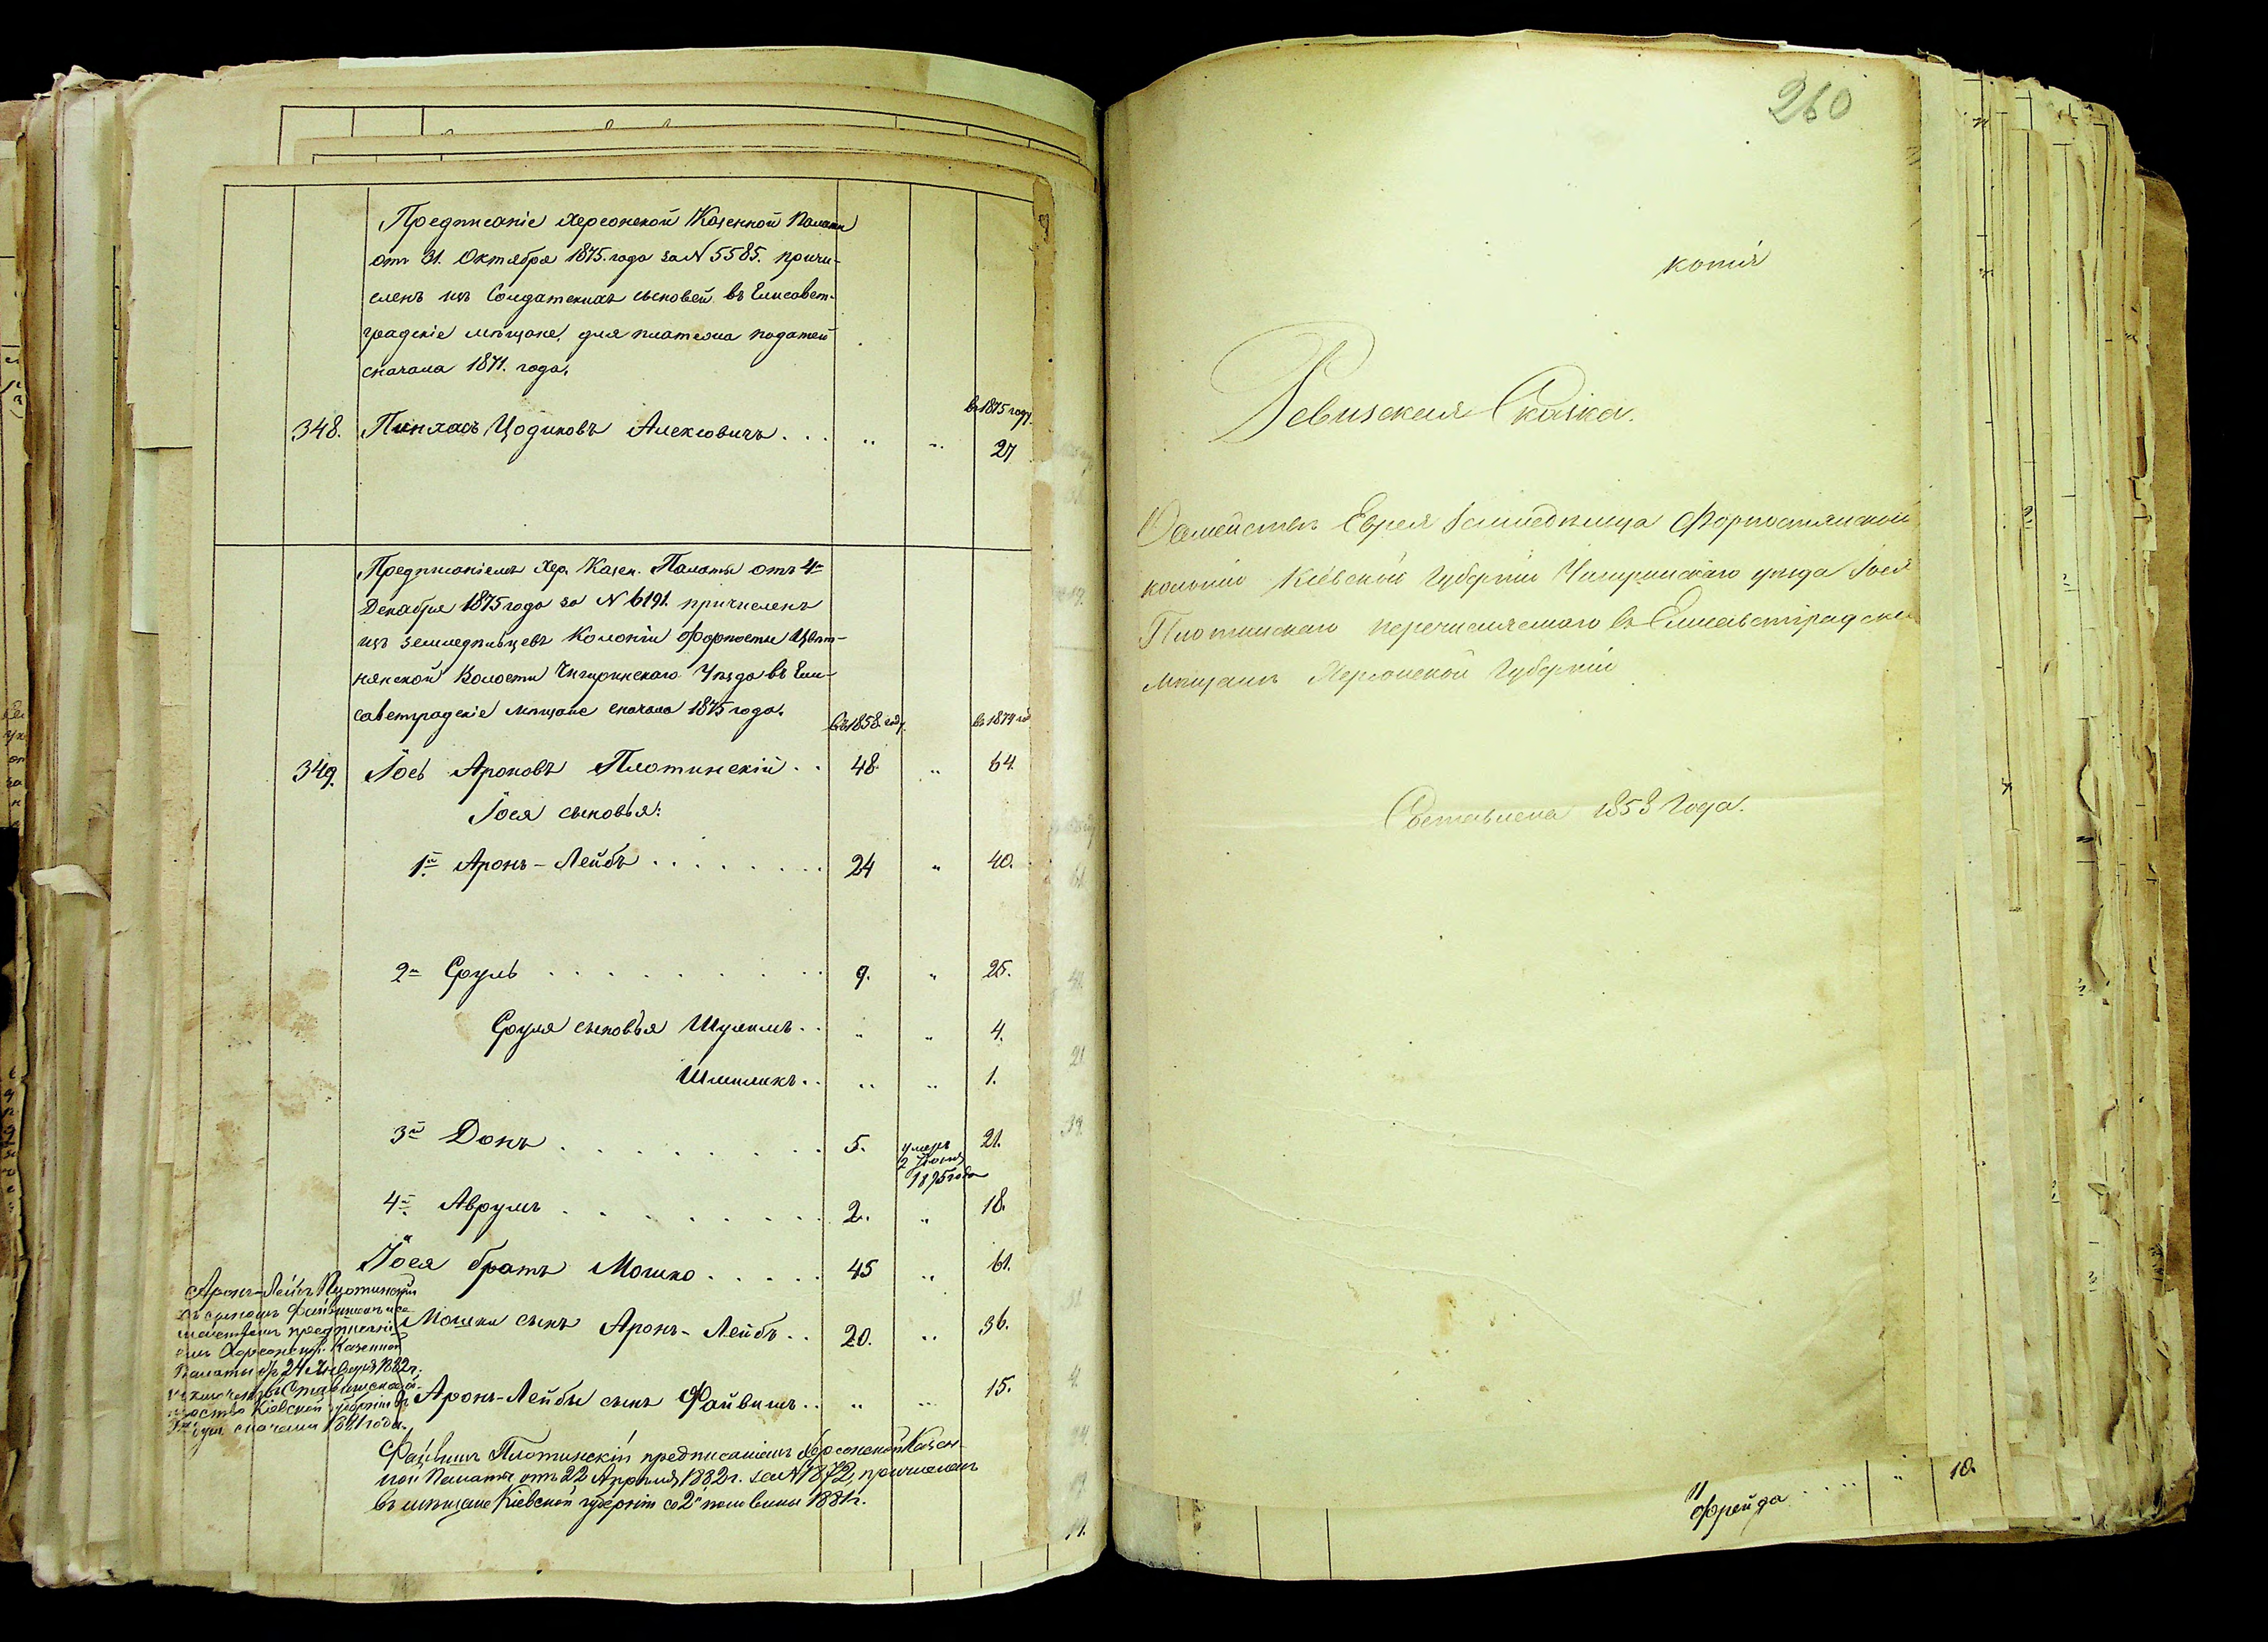 Предписаніе Херсонской Казенной Палаты
отъ 31. Октября 1875. года за № 5585. причи-
сленъ изъ Солдатскихъ сыновей въ Елисавет-
градскіе мѣщане, для платежа податей
сначала 1871. года.
въ 1875 году.
348. Пинхасъ Цодиковъ Алексовичъ . . . „ „ 27
Предписаніемъ Хер. Казен. Палаты отъ 4го
Декабря 1875 года за № 6191. причисленъ
изъ земледѣльцевъ Колоніи Форпосты Цвѣт-
нянской Волости Чигиринскаго Уѣзда въ Ели-
саветградскіе мѣщане сначала 1875 года.
въ 1858. году. въ 1874 го
349. Іось Ароновъ Плотинскій . . 48. „ 64.
Іося сыновья:
1й Аронъ-Лейбъ . . . . . . . . 24 „ 40.
2й Сруль . . . . . . . . . . 9. „ 25.
Сруля сыновья Шулимъ . . „ „ 4.
Шмиликъ . . „ „ 1.
3й Донъ . . . . . . . . 5. умеръ 21.
2 Іюня
1875 года
4й Аврумъ . . . . . . . . 2. „ 18.
Іося братъ Мошко . . . . . 45 „ 61.
Мошки сынъ Аронъ-Лейбъ . . 20. „ 36.
Аронъ-Лейбы сынъ Файвишъ . . „ „ 15.
Аронъ-Лейбъ Плотинскій
съ сыномъ Файвишемъ и се-
мействомъ предписані-
емъ Херсонской Казенной
Палаты отъ 24 Января 1882 г.
Кіевской губерніи въ
сначала 1881 года.
Файвишъ Плотинскій предписаніемъ Херсонской Казен-
ной Палаты отъ 22 Апрѣля 1882 г. за № 1872, причисленъ
въ мѣщане Кіевской губерніи со 2й половины 1881 г.
260
копія
Ревизская Сказка.
Семейства Еврея Земледѣльца Форпостянской
колоніи Кіевской Губерніи Чигиринскаго уѣзда Іося
Плотинскаго перечисляемаго въ Елисаветградскіе
мѣщане Херсонской Губерніи
Составлена 1858 Года.
Фрейда . . . . „ 10.